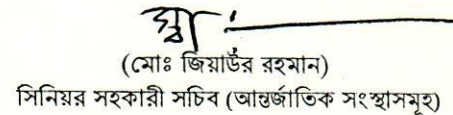 (মোঃ জিয়াউর রহমান)
সিনিয়র সহকারী সচিব (আন্তর্জাতিক সংস্থাসমূহ)